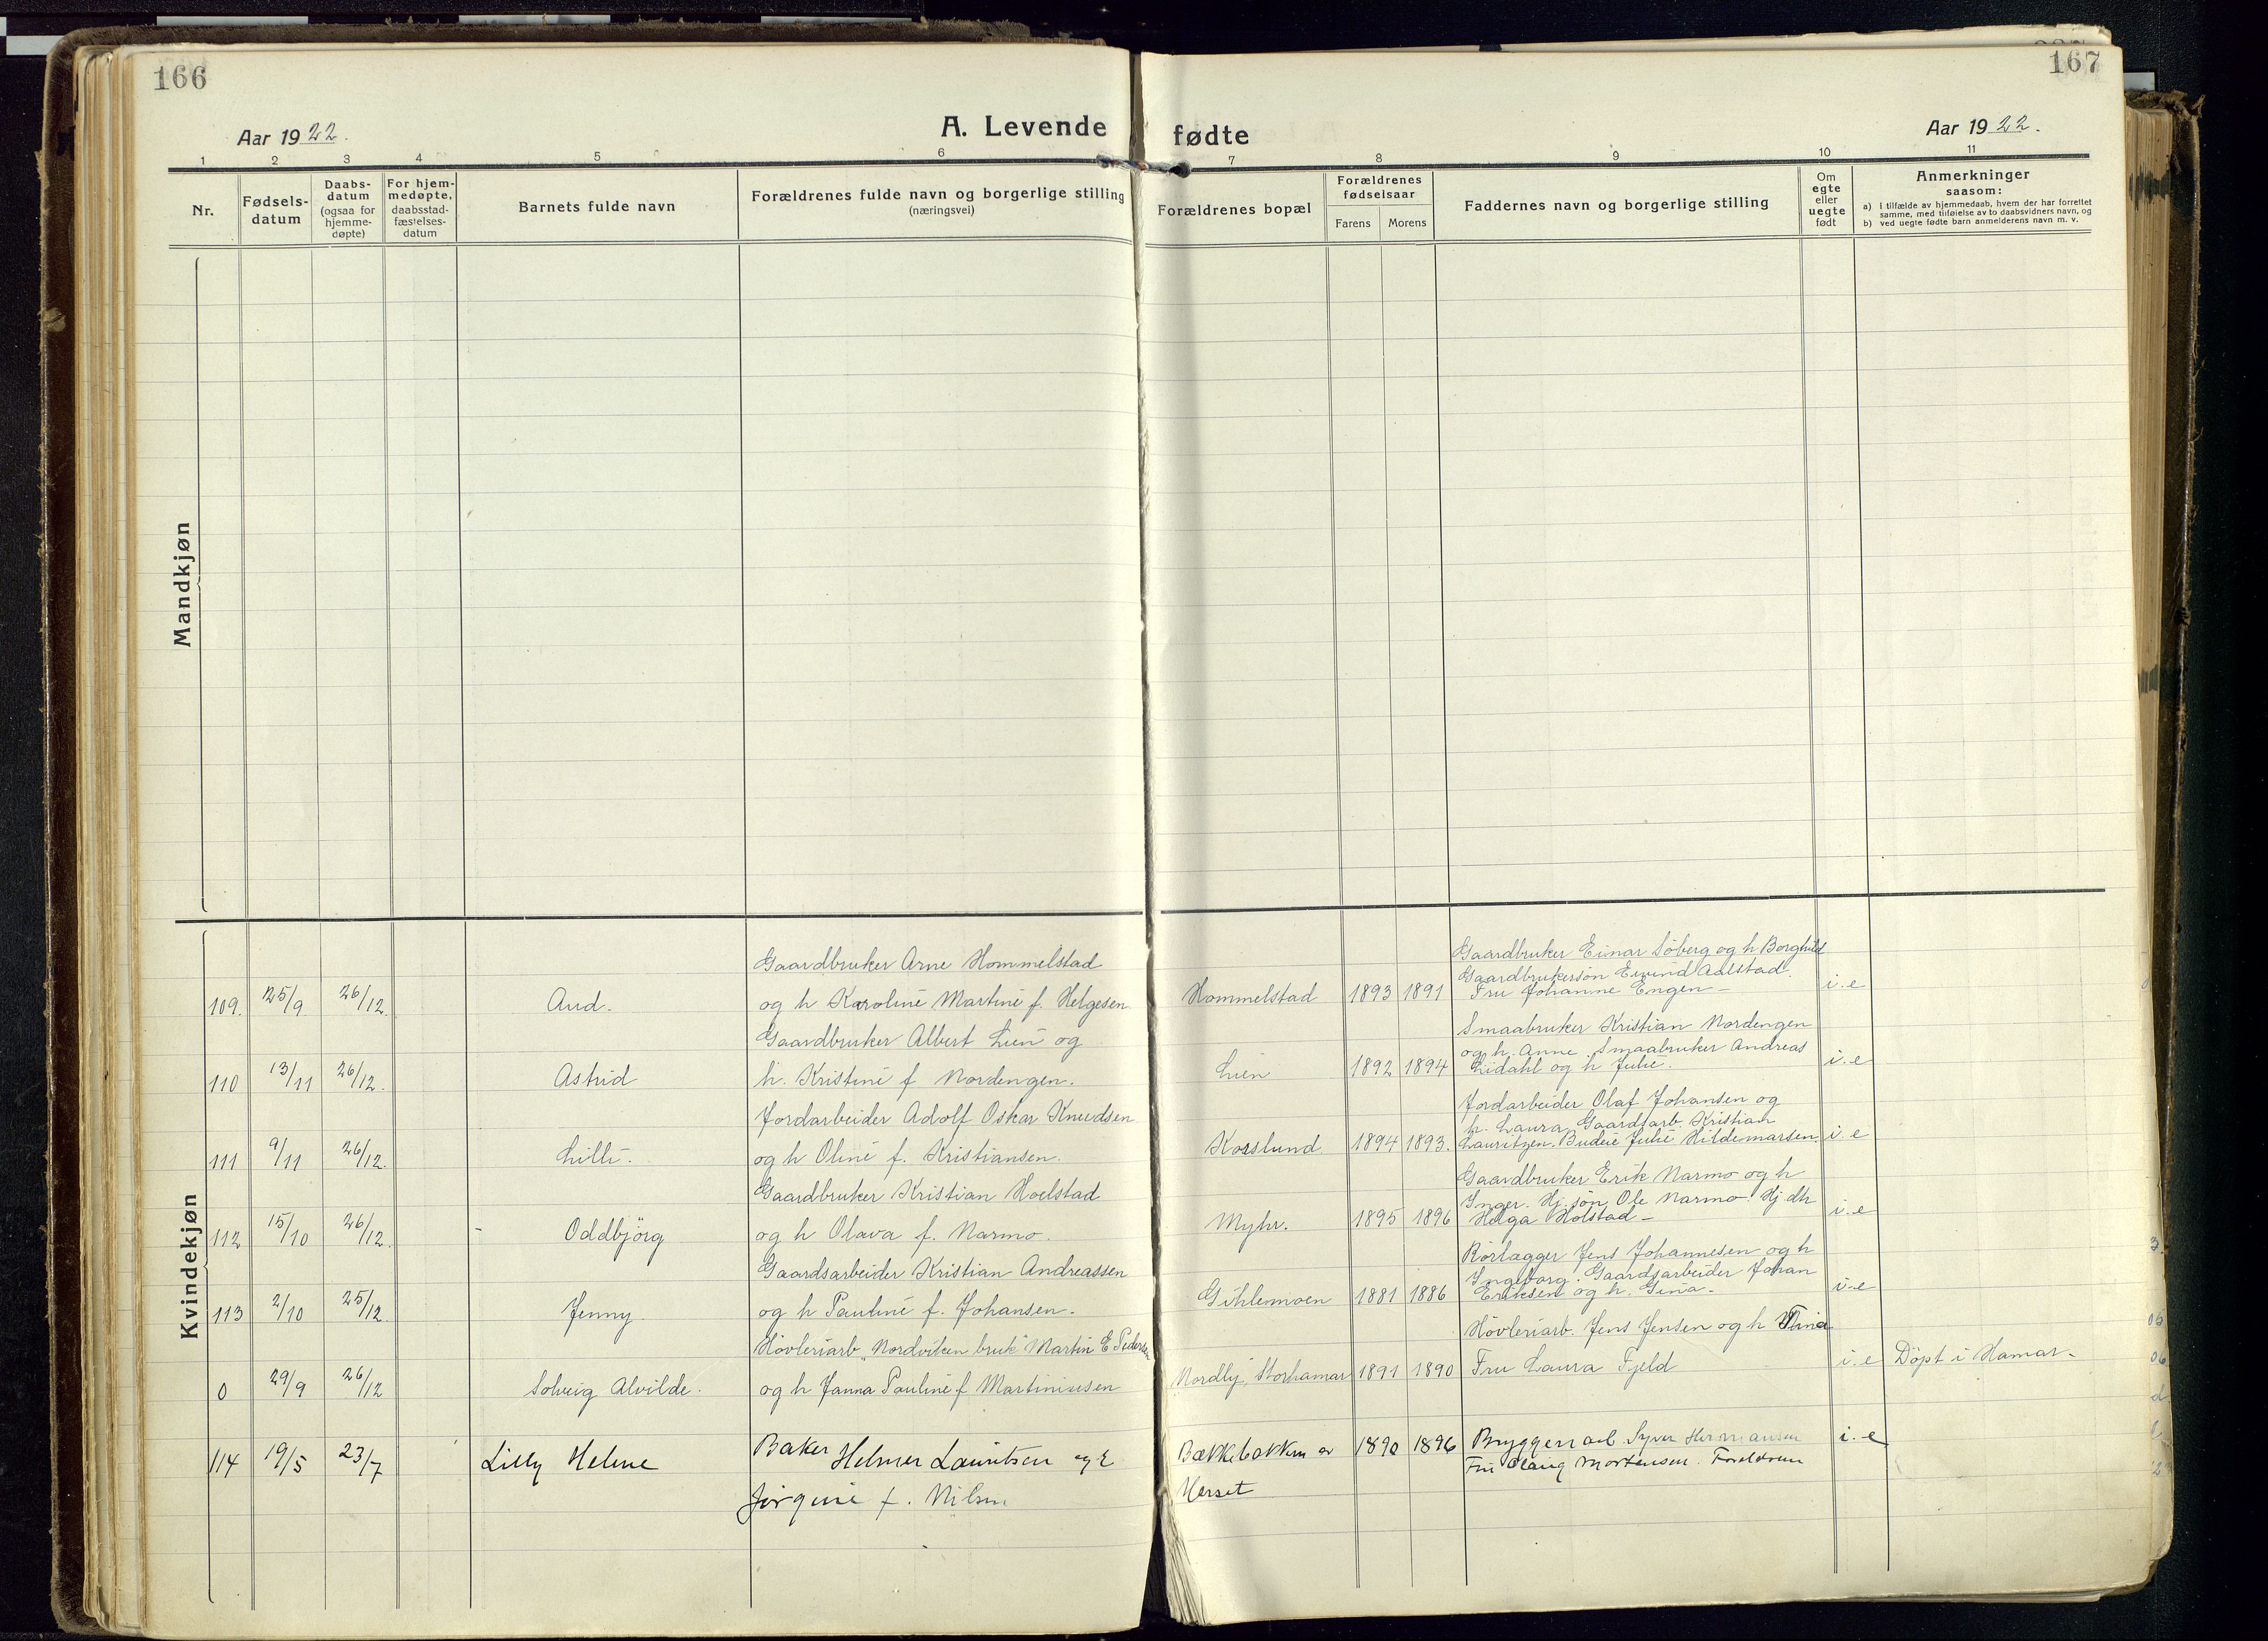 166
167
Aar 1922.
A. Levende
fødte
Aar 1922.
1 2 3 4 5 6 7 8 9 10 11
Nr.
Fødsels-
datum
Daabs-
datum
(ogsaa for
hjemme-
døpte)
For hjem-
medøpte,
daabsstad-
fæstelses-
datum
Barnets fulde navn
Forældrenes fulde navn og borgerlige stilling
(næringsvei)
Forældrenes bopæl
Forældrenes
fødselsaar
Farens
Morens
Faddernes navn og borgerlige stilling
Om
egte
eller
uegte
født
Anmerkninger
saasom:
a) I tilfælde av hjemmedaab, hvem der har forrettet
samme, med tilføielse av to daabsvidners navn, og
b) ved uegte fødte barn anmelderens navn m. v.
Mandkjøn
Kvindekjøn
Gaardbruker Arne Hommelstad
Gaardbruker Einar Söberg og h Borghild
Gaardbrukersön Eivind Aalstad.
109. 25/9 26/12. Aud. og h Karoline Martine f. Helgesen Hommelstad 1893 1891 Fru Johanne Engen- i.e
Gaardbruker Albert Lien og
Smaabruker Kristian Nordengen
og h. Anne. Smaabruker Andreas
110 13/11 26/12. Astrid h. Kristine f Nordengen. Lien 1892 1894 Lidahl og h Julie. i.e
Jordarbeider Adolf Oskar Knudsen
Jordarbeider Olaf Johansen og
h. Laura. Gaardarb. Kristian
111 9/11 26/12. Lilli. og h Oline f. Kristiansen. Korslund 1894 1893. Lauritzen. Budeie Julie Hildemarsen i.e
Gaardbruker Kristian Hoelstad
Gaardbruker Erik Narmo og h
Inger. Hj. søn Ole Narmo Hj. dtr
112 15/10 26/12. Oddbjörg og h Olava f. Narmo. Myhr. 1895 1896 Helga Holstad- i.e
Gaardsarbeider Kristian Andreassen
Rörlægger Jens Johannesen og h
Ingeborg. Gaardsarbeider Johan
113 2/10 25/12. Jenny. og h Pauline f. Johansen. Gihlemoen 1881 1886 Eriksen og h. Gina. i-e
Hövleriarb. "Nordviken bruk" Martin E Pedersen
Hövleriarb. Jens Jensen og h Thina
0 29/9 26/12 Solveig Alvilde. og h Janna Pauline f Martiniusen Nordly, Storhamar 1891 1890 Fru Laura Fjeld i.e Döpt i Hamar.
114 19/5 23/7 Lilly Helene Baker Helmer Lauritsen og h Bækkebakken av 1890 1896 Bryggeriarb. Syver Hermansen i.-e
Jørgine f. Nilsen Herset Fru Olaug Mortensen. Foreldrene